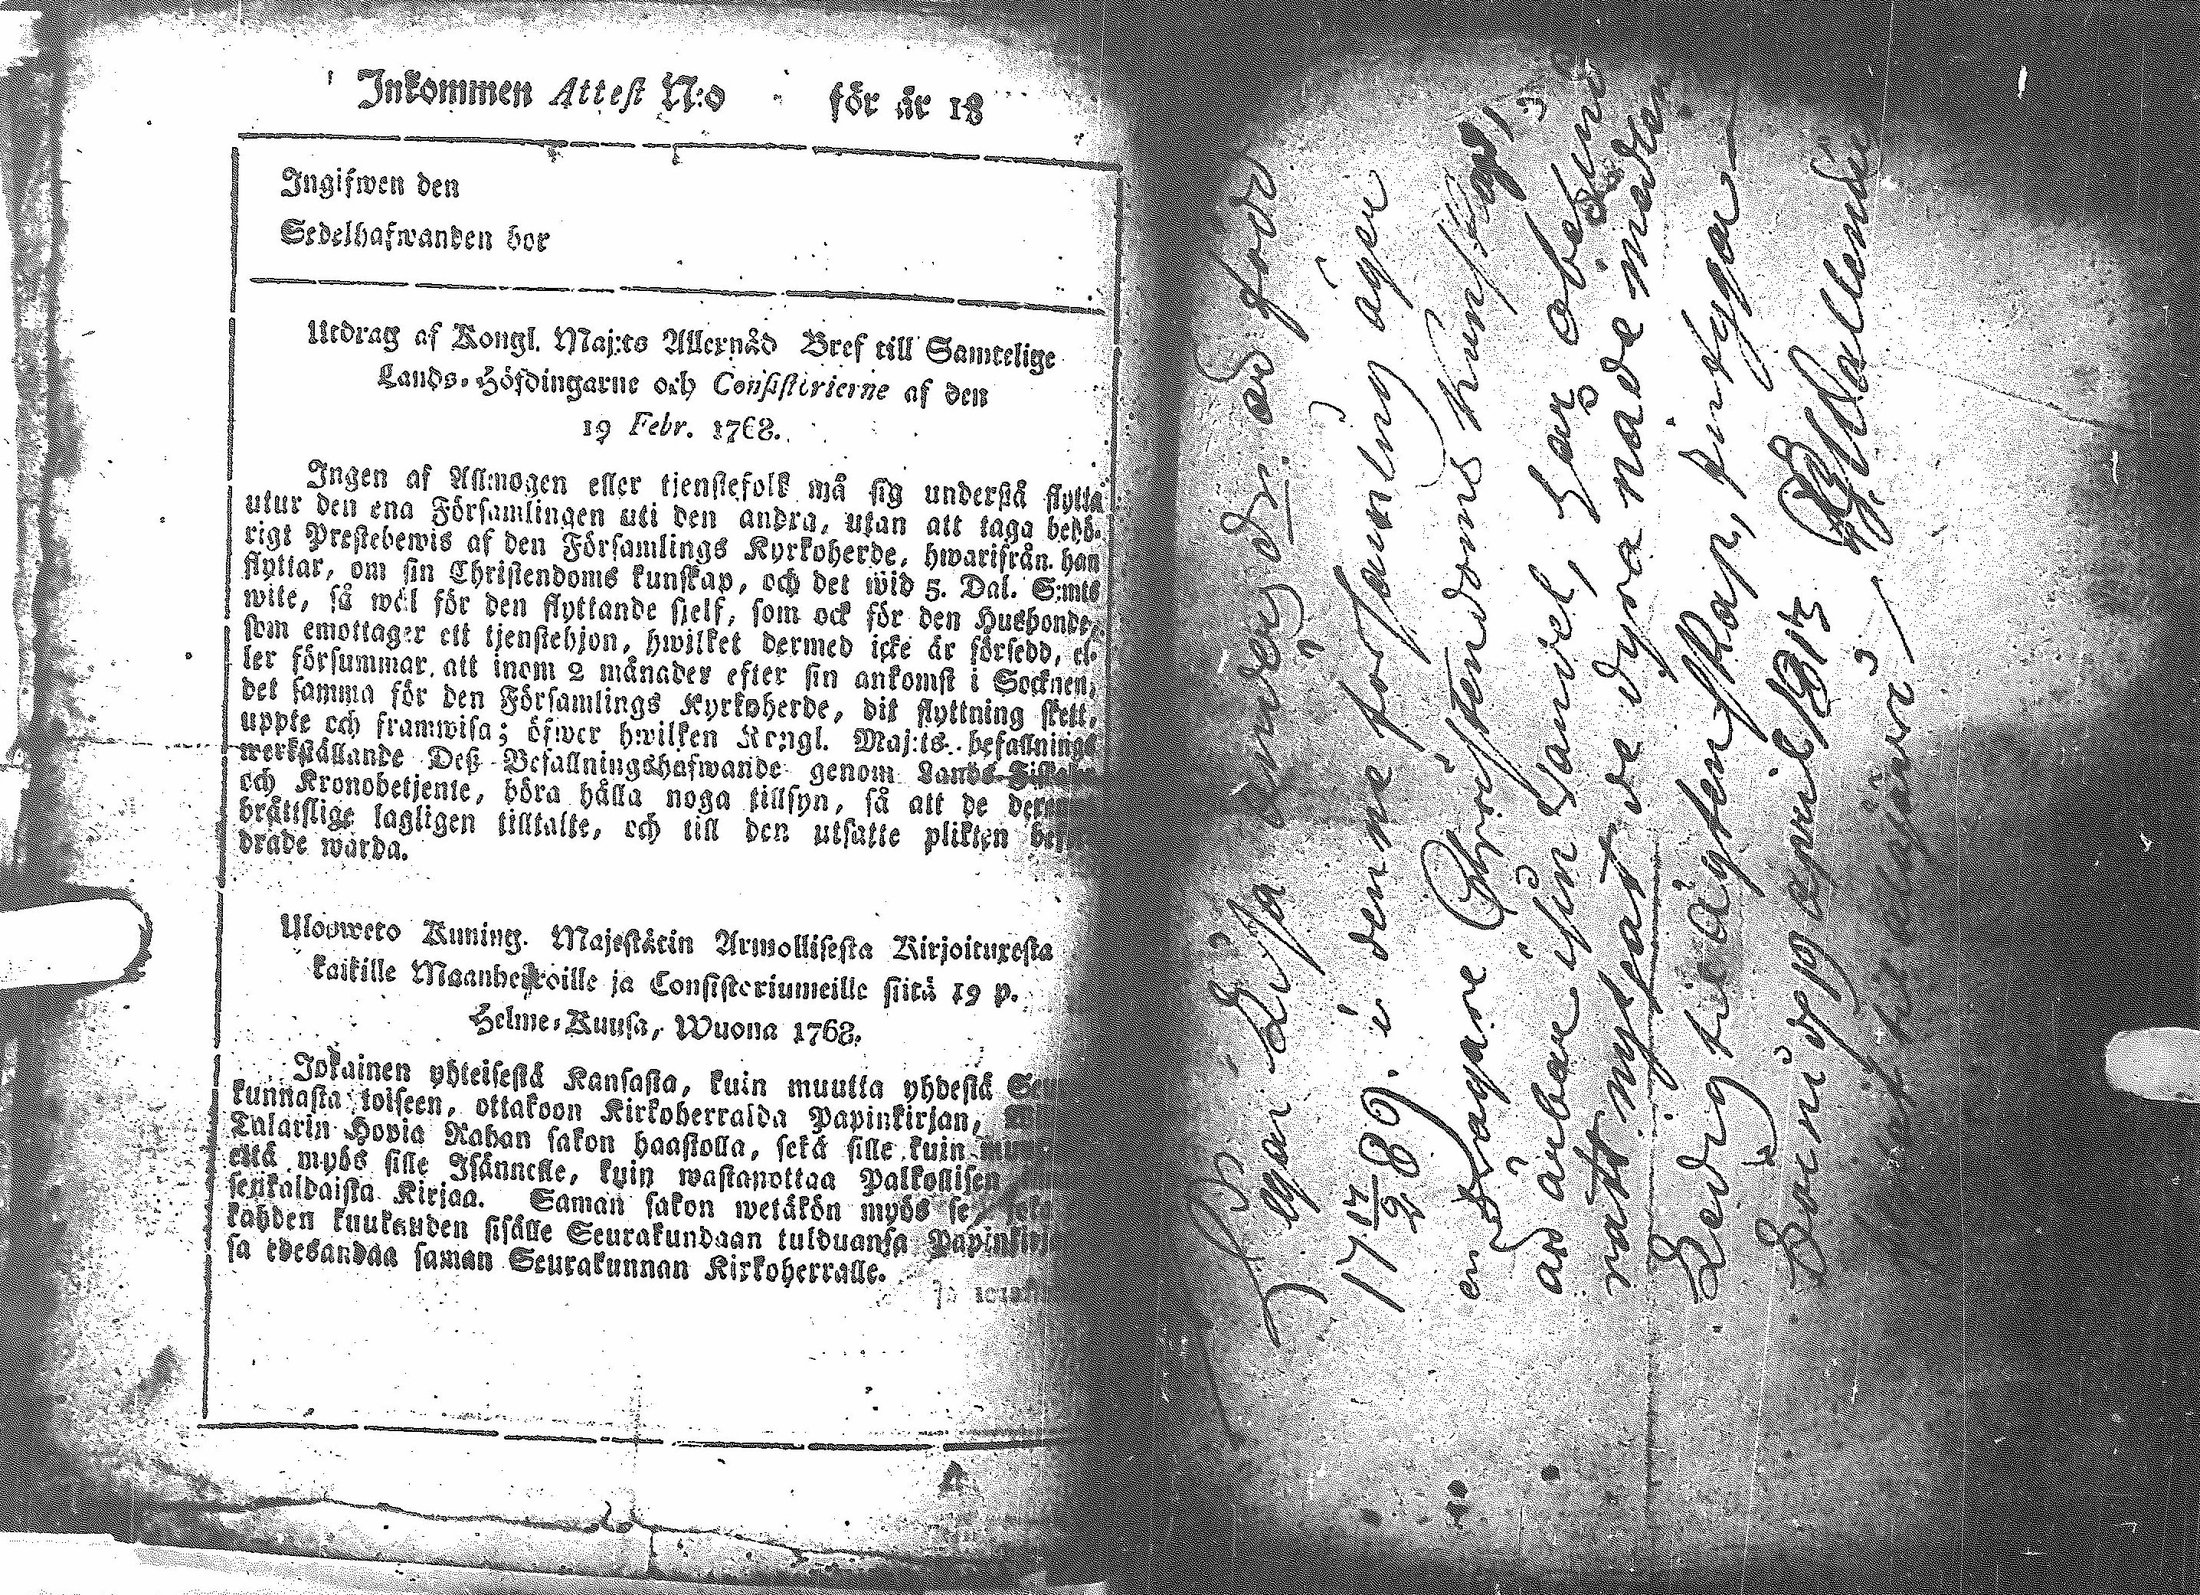 Inkommen Attest N:o för år 18
Ingifwen den
Sedelhafwanden bor
Utdrag af Kongl. Maj:ts Allernåd Bref till Samtelige
Lands-Höfdingarne och Consistorierne af den
19 Febr. 1768.
Ingen af Allmogen eller tjenstefolk må sig understå flytta
utur den ena Församlingen uti den andra, utan att taga behö-
rigt Prestebewis af den Församlings Kyrkoherde, hwarifrån han
flyttar, om sin Christendoms kunskap, och det wid 5. Dal. S:mts
wite, så wäl för den flyttande sjelf, som ock för den Husbonde,
som emottager ett tjenstehjon, hwilket dermed icke är försedd, el-
ler försummar, att inom 2 månader efter sin ankomst i Socknen,
det samma för den Församlings Kyrkoherde, dit flyttning skett,
uppte och framwisa; öfwer hwilken Kongl. Maj:ts befallnings
werkställande Deß Befallningshafwande genom Lands-Fiskaler
och Kronobetjente, böra hålla noga tillsyn, så att de
bråttslige lagligen tilltalte, och till den utsatte plikten
drade warda.
Ulosweto Kuning. Majestätin Armollisesta Kirjoituxesta
kaikille Maanherroille ja Consistoriumeille siitä 19 p.
Helme-Kuusa, Wuona 1768.
Jokainen yhteisestä Kansasta, kuin muutta yhdestä
kunnasta toiseen, ottakoon Kirkoherralda Papinkirjan,
Talarin Hopia Rahan sakon haastolla, sekä sille kuin
että myös sille Isännelle, kuin wastanottaa Palkollisen
senkaldaista Kirjaa. Saman sakon wetäkön myös se
kahden kuukauden sisälle Seurakundaan tulduansa
sa edesandaa saman Seurakunnan Kirkoherralle.
Pigan Lisa är född
17 17/2 89. i denne församling äger
en svagare Christendoms kunskap,
är ärbar i sin vandel, har obehind
ratt nyttjat de dyra nåde medlen
Ledig til Ägtenskap, intygar
19 april 1813